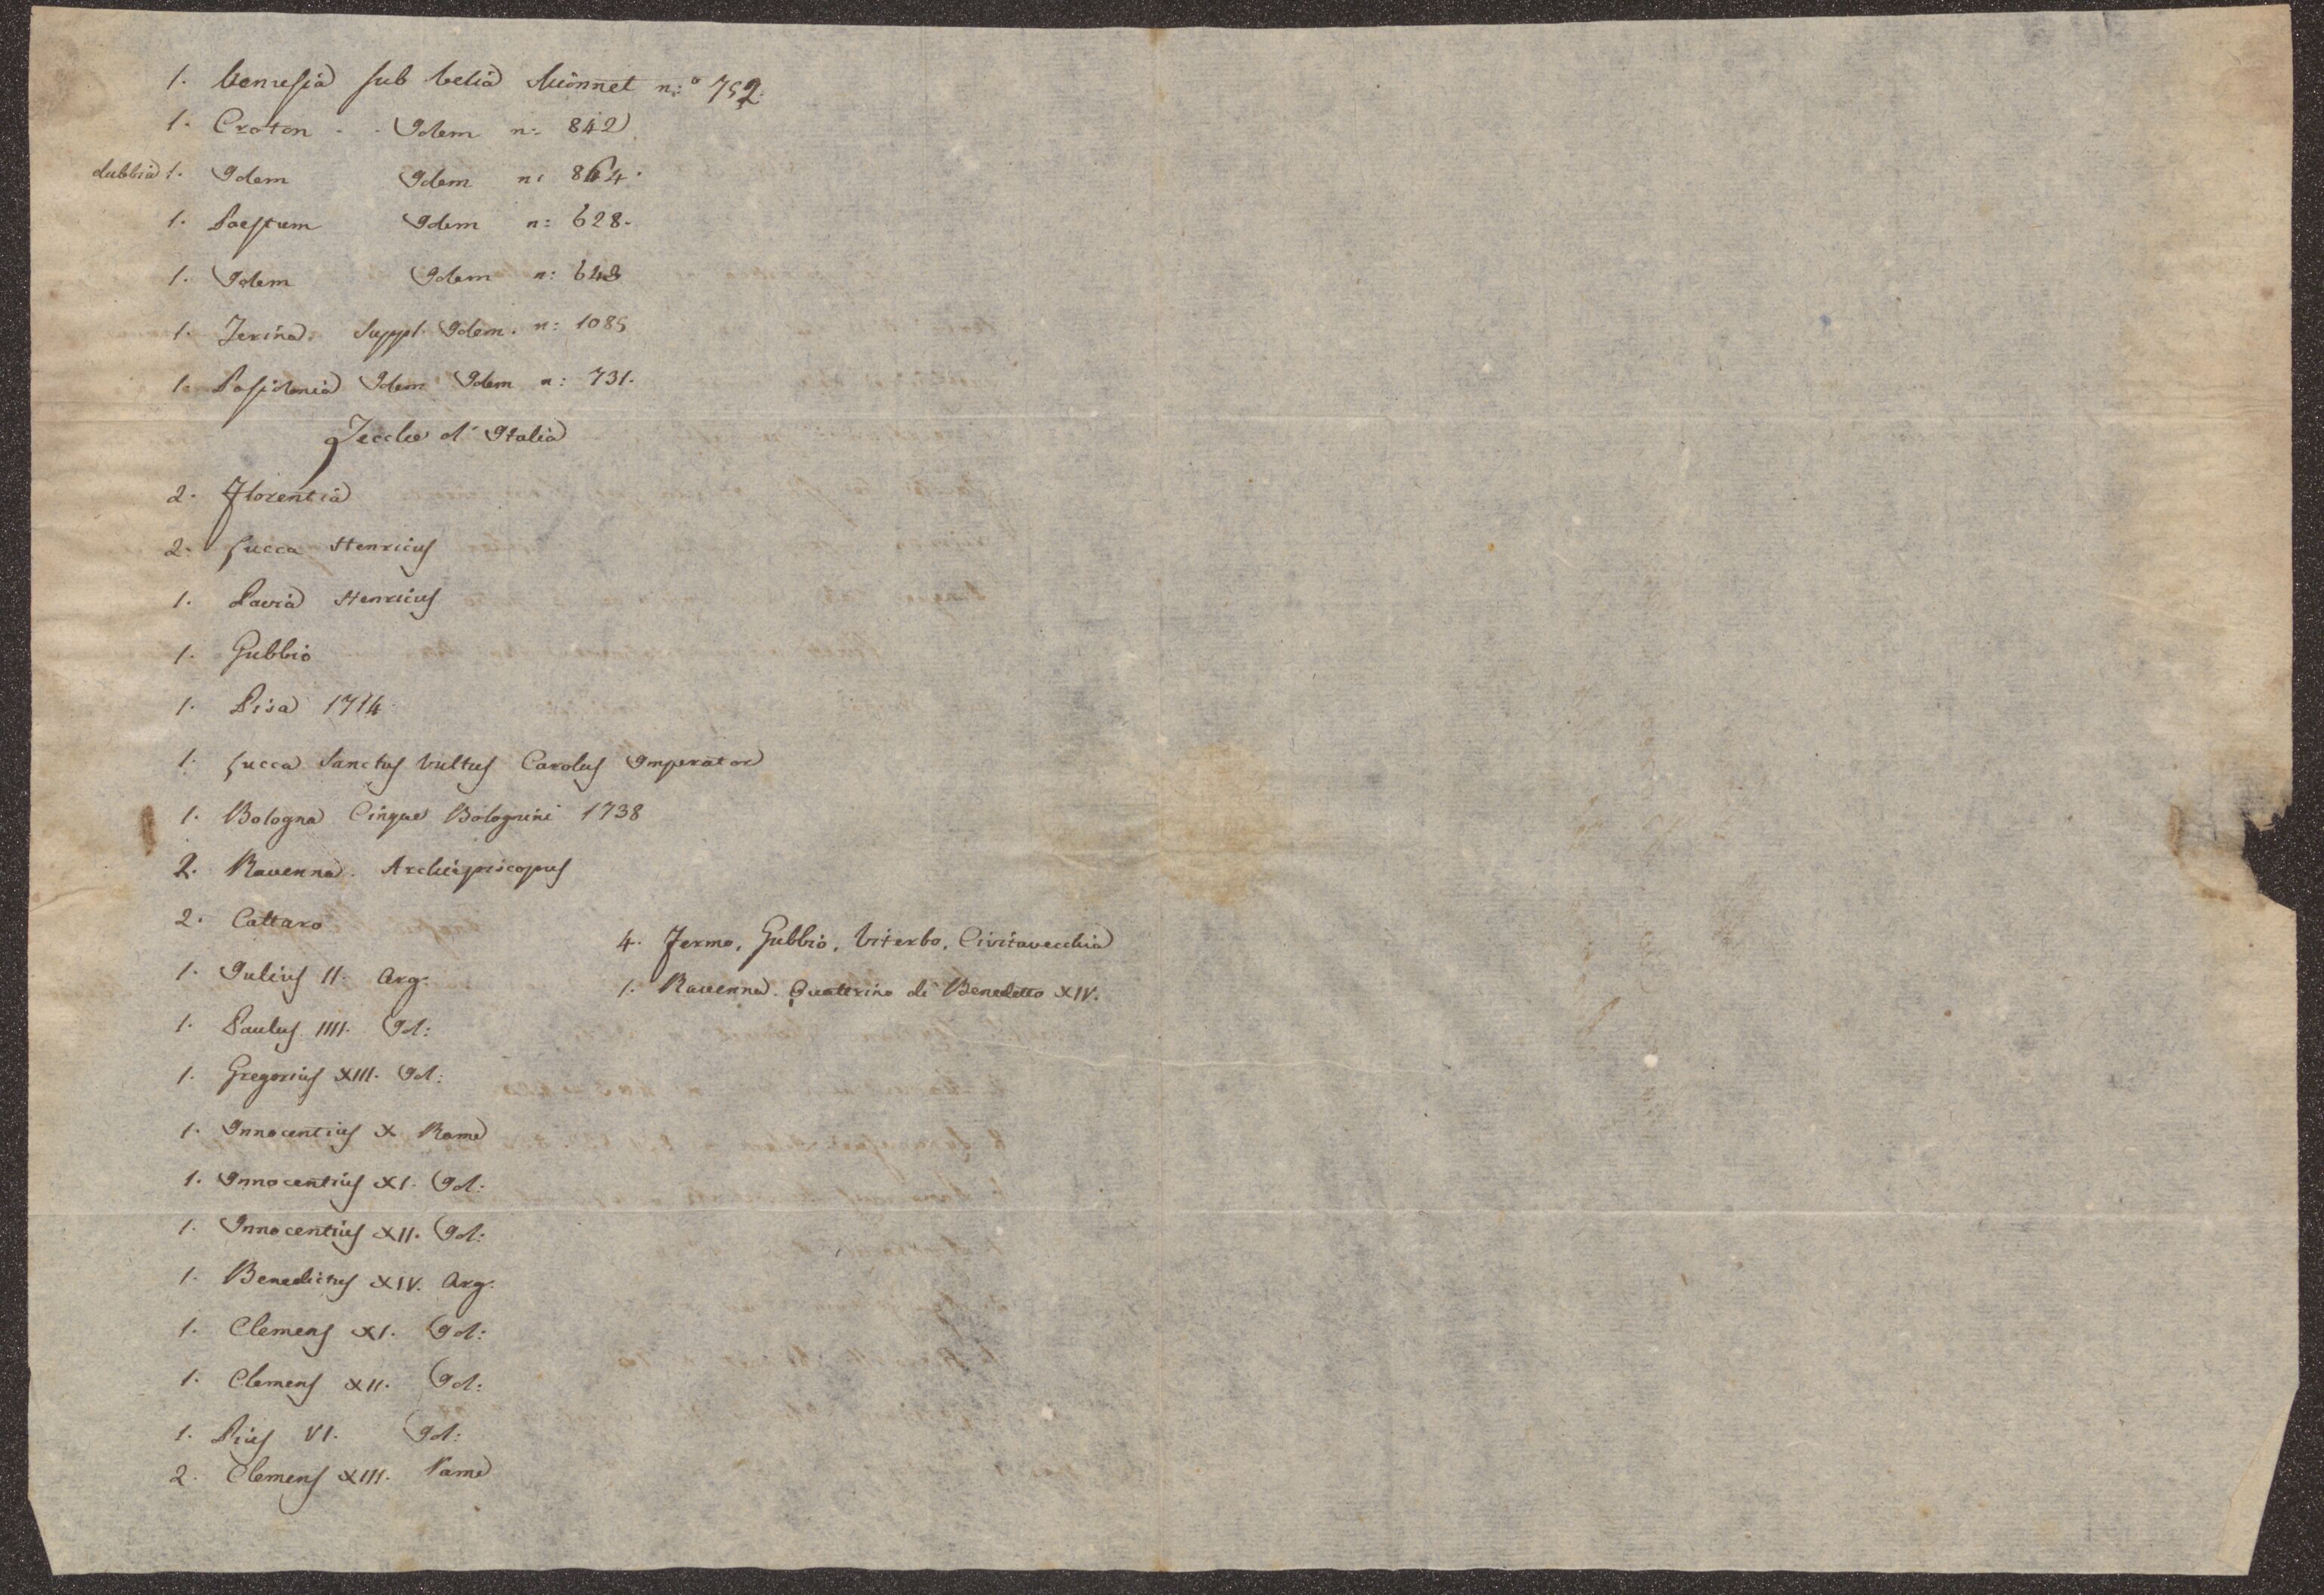 1. Venusia sub Velia Mionnet n:° 752
1. Croton - - Idem n: 842
dubbia 1. Idem Idem n: 864.
1. Paestum Idem n: 628.
1. Idem Idem n: 648
1. Terina. Suppl. Idem. n: 1085
1. Posidonia Idem Idem n: 731.
Zecche d'Italia
2. Florentia
2. Lucca Henricus
1. Pavia Henricus
1. Gubbio
1. Pisa 1714
1. Lucca Sanctus Vultus Carolus Imperator
1. Bologna Cinque Bolognini 1738
2. Ravenna. Archiepiscopus
2. Cattaro
1. Julius II. Arg.
1. Paulus IIII. Id:
1. Gregorius XIII. Id:
1. Innocentius X Rame
1. Innocentius XI. Id:
1. Innocentius XII. Id:
1. Benedictus XIV. Arg.
1. Clemens XI. Id:
1. Clemens XII. Id:
1. Pius VI. Id:
2. Clemens XIII. Rame
4. Fermo, Gubbio, Viterbo, Civitavecchia
1. Ravenna. Quattrino di Benedetto XIV.